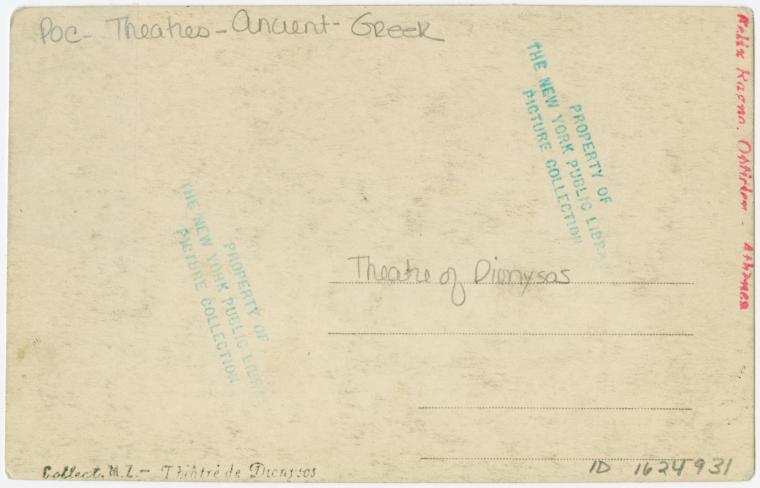 Poc- Theatres - Ancient - Greek
PROPERTY OF
THE NEW YORK PUBLIC LIBRARY
PICTURE COLLECTION
PROPERTY OF
THE NEW YORK PUBLIC LIBRARY
PICTURE COLLECTION
Theatre of Dionysos
Collect. M. L. — Théâtre de Dionysos
ID 1624931